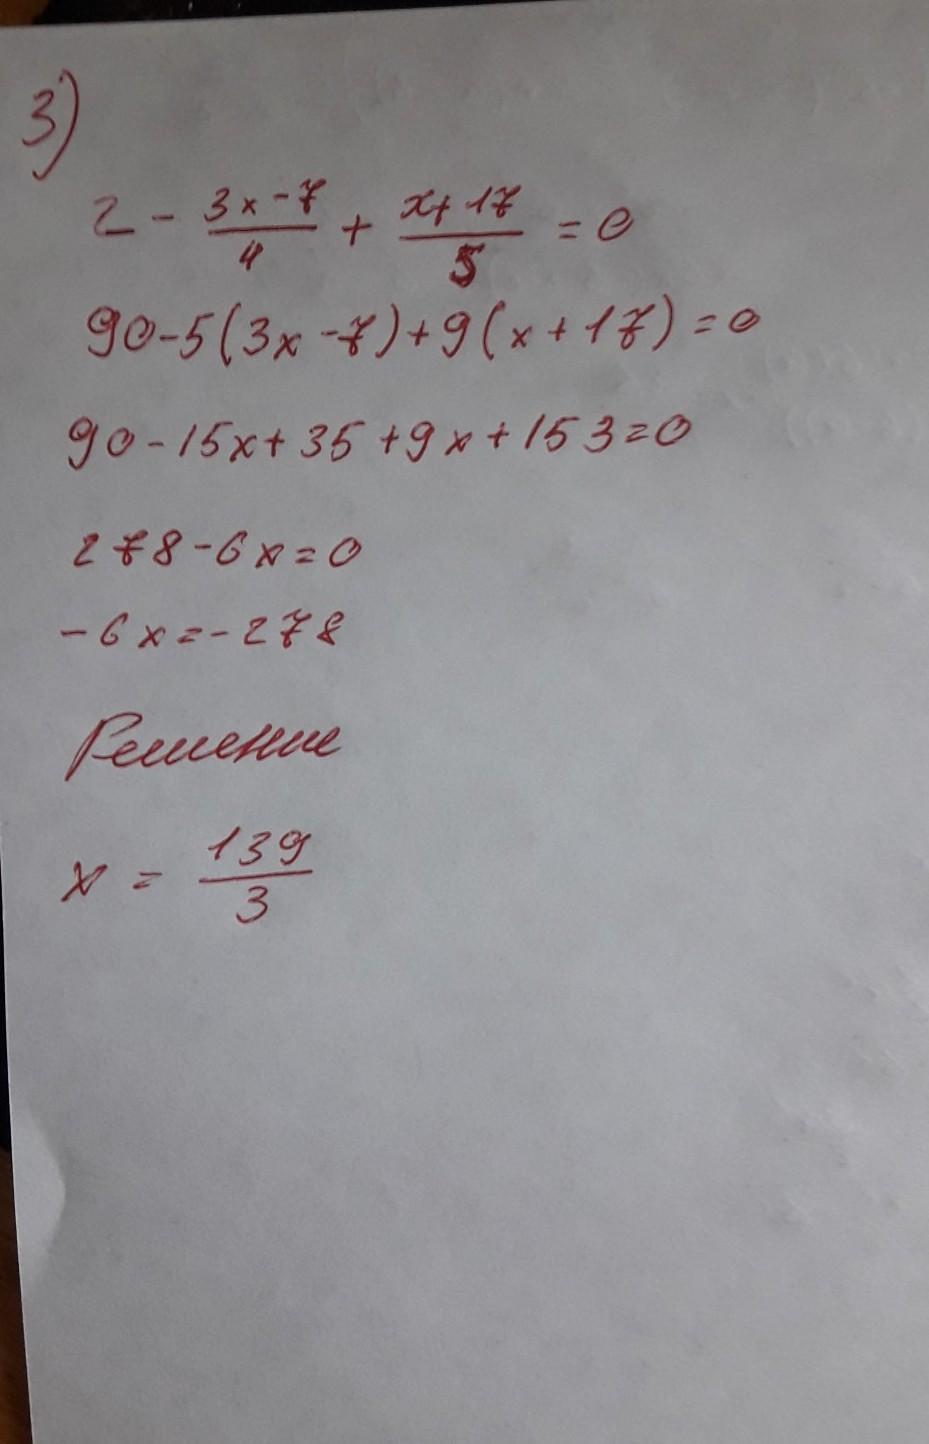 3)
2 - (3x-7)/4 + (x+17)/5 = 0
90-5(3x-7)+9(x+17)=0
90-15x+35+9x+153=0
278-6x=0
-6x=-278
Решение
x = 139/3